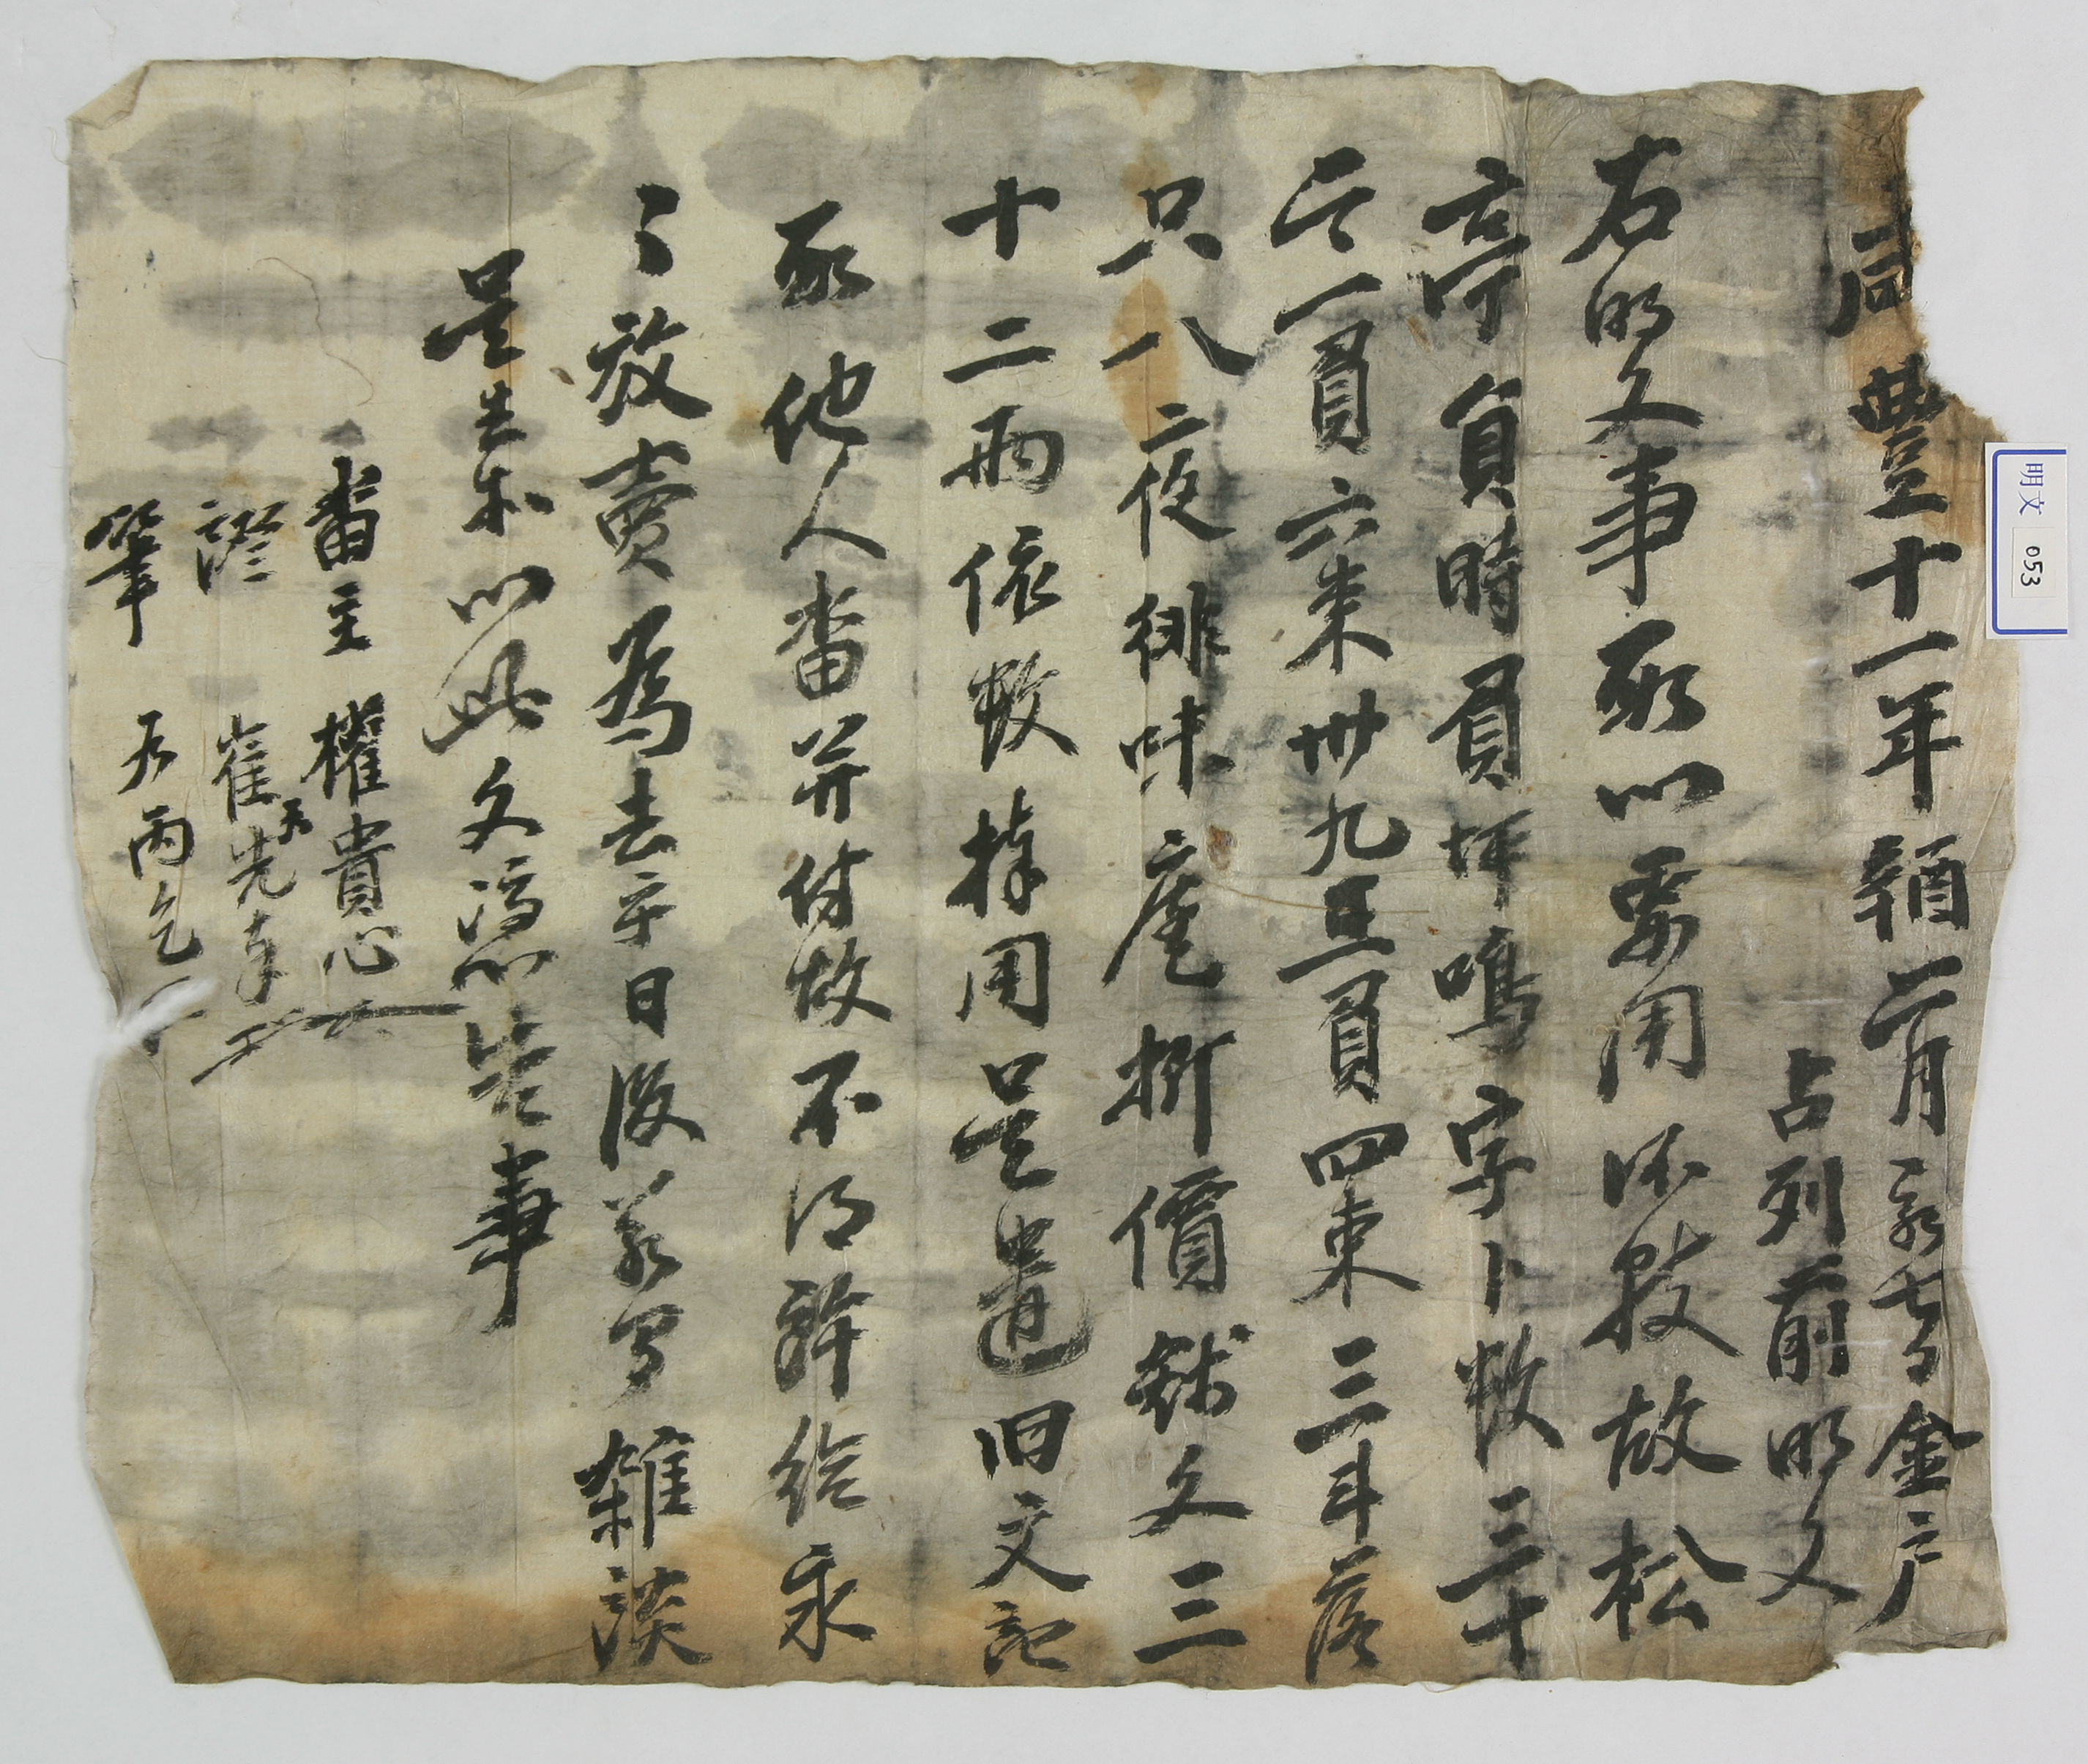 咸豊十一年辛酉二月初七日金戶
占列前明文
右明文事段以要用所致故松
亭員時員坪鳴字卜数三十
一負六束卅九 負四束三斗落
只八夜味 庫折價錢文三
十二兩依数捧用是遣旧文記
段他人畓并付故不得許給永
永放賣爲去乎日後若有雜談
是去等以此文憑告事
畓主 權貴心
證 崔先
筆 丙
明文 053